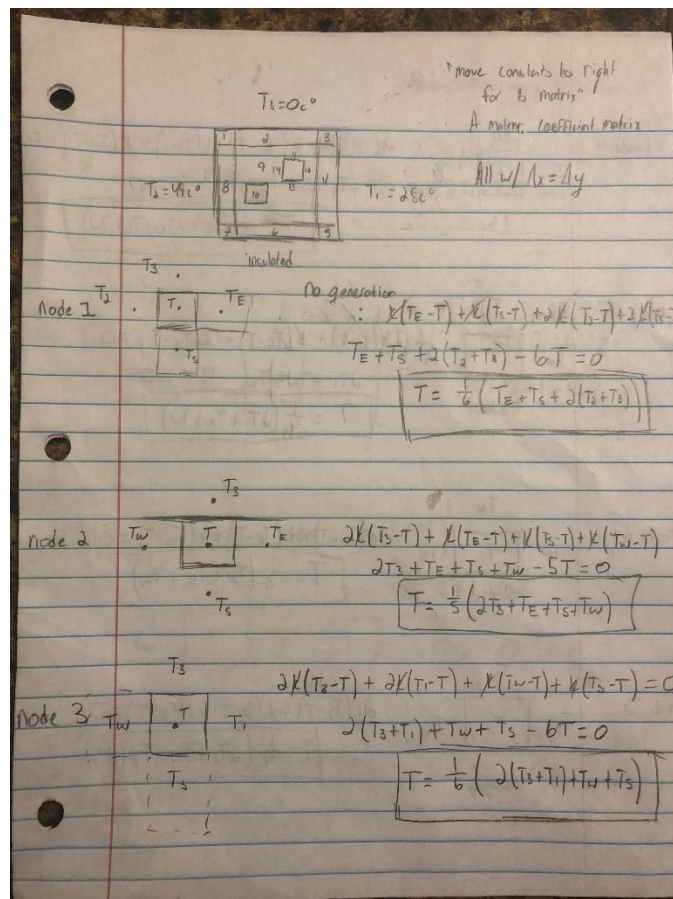 "move constants to right
for b matrix"
A matrix: coefficient matrix
All w/ Δx = Δy
T3 = 0c°
1 2 3
9 14
T2 = 44c° 8 4 T1 = 28c°
10 13
7 6 5
insulated
node 1
T3
T2 T. TE
Ts
No generation
: k(TE-T) + k(Ts-T) + 2k(T3-T) + 2k(T2-T
TE + Ts + 2(T2+T3) - 6T = 0
T = 1/6 (TE + Ts + 2(T2+T3))
node 2
T3
Tw T TE
Ts
2k(T3-T) + k(TE-T) + k(Ts-T) + k(Tw-T)
2T3 + TE + Ts + Tw - 5T = 0
T = 1/5 (2T3 + TE + Ts + Tw)
node 3
T3
Tw T T1
Ts
2k(T3-T) + 2k(T1-T) + k(Tw-T) + k(Ts-T) = 0
2(T3+T1) + Tw + Ts - 6T = 0
T = 1/6 (2(T3+T1) + Tw + Ts)